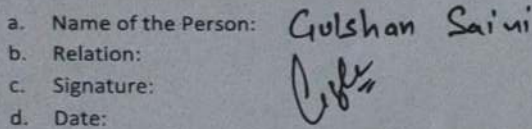 a. Name of the Person: Gulshan Saini
b. Relation:
c. Signature:
d. Date: